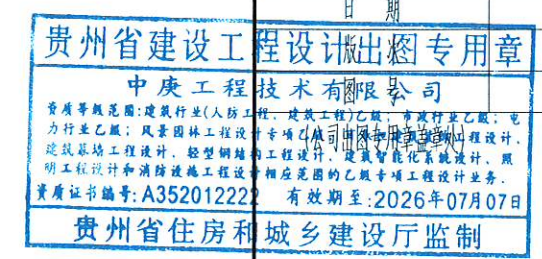 日 期
贵州省建设工程设计出图专用章
版 次
中庚工程技术有限公司
图 号
资质等级范围:建筑行业(人防工程、建筑工程)乙级;市政行业乙级;电
力行业乙级;风景园林工程设计专项乙级;程设计、
(公司出图专用章盖章处)
建筑幕墙工程设计、轻型钢结构工程设计、建筑智能化系统设计、照
明工程设计和消防设施工程设计相应范围的乙级专项工程设计业务.
资质证书编号:A352012222 有效期至:2026年07月07日
贵州省住房和城乡建设厅监制